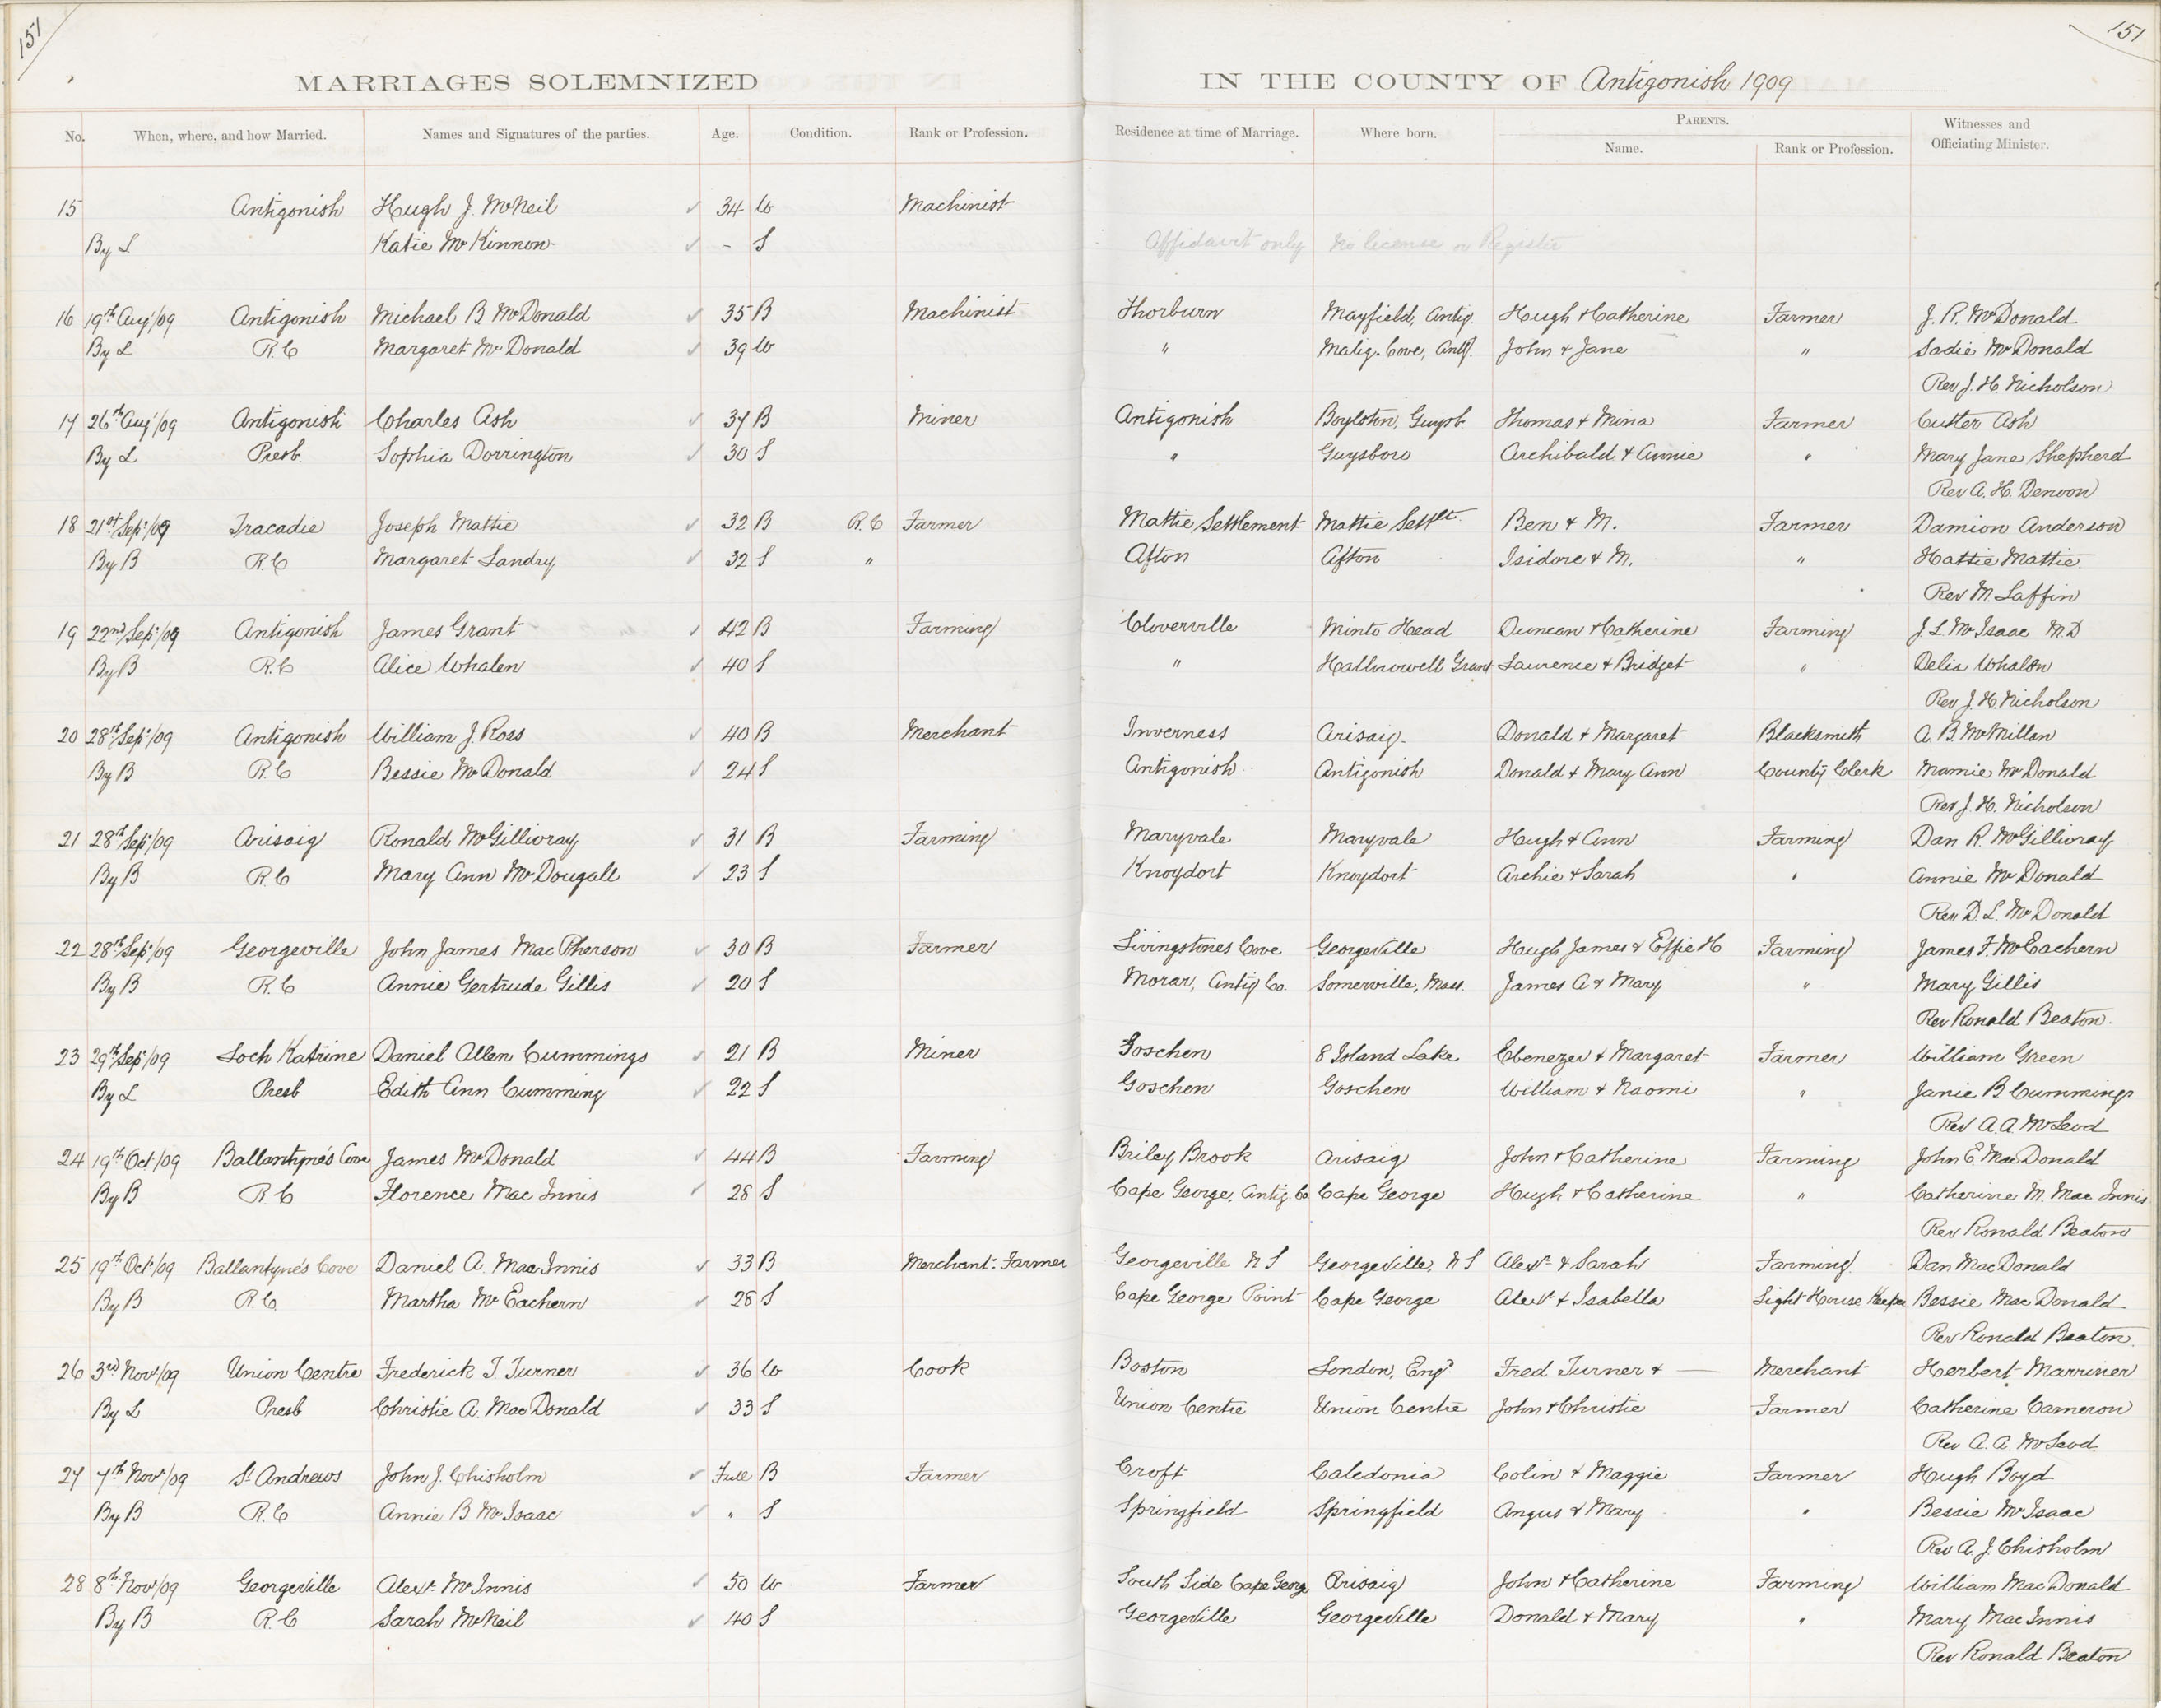 151 151
MARRIAGES SOLEMNIZED IN THE COUNTY OF Antigonish 1909
No. When, where, and how Married. Names and Signatures of the parties. Age. Condition. Rank or Profession. Residence at time of Marriage. Where born. PARENTS. Name. Rank or Profession. Witnesses and Officiating Minister.
15 Antigonish Hugh J. McNeil 34 W Machinist
By L Katie McKinnon - S Affidavit only No license or Register
16 19th Aug/09 Antigonish Michael B McDonald 35 B Machinist Thorburn Mayfield, Antig. Hugh & Catherine Farmer J. R. McDonald
By L R.C Margaret McDonald 39 W " Malig. Cove, Antg. John & Jane " Sadie McDonald
Rev J. H. Nicholson
17 26th Aug/09 Antigonish Charles Ash 37 B Miner Antigonish Boylston, Guysb. Thomas & Mina Farmer Cutter Ash
By L Presb. Sophia Dorrington 30 S " Guysboro Archibald & Annie " Mary Jane Shepherd
Rev A. H. Denoon
18 21st Sep/09 Tracadie Joseph Mattie 32 B R.C Farmer Mattie Settlement Mattie Settlt. Ben & M. Farmer Damion Anderson
By B R.C Margaret Landry 32 S " Afton Afton Isidore & M. " Hattie Mattie
Rev M. Laffin
19 22nd Sep/09 Antigonish James Grant 42 B Farming Cloverville Minto Head Duncan & Catherine Farming J. L. McIsaac M.D
By B R.C Alice Whalen 40 S " Hallowwell Grant Laurence & Bridget " Delia Whalen
Rev J. H. Nicholson
20 28th Sep/09 Antigonish William J. Ross 40 B Merchant Inverness Arisaig Donald & Margaret Blacksmith A. B. McMillan
By B R.C Bessie McDonald 24 S Antigonish Antigonish Donald & Mary Ann County Clerk Mamie McDonald
Rev J. H. Nicholson
21 28th Sep/09 Arisaig Ronald McGillivray 31 B Farming Maryvale Maryvale Hugh & Ann Farming Dan R. McGillivray
By B R.C Mary Ann McDougall 23 S Knoydort Knoydort Archie & Sarah " Annie McDonald
Rev D. L. McDonald
22 28th Sep/09 Georgeville John James MacPherson 30 B Farmer Livingstones Cove Georgeville Hugh James & Effie H Farming James F. McEachern
By B R.C Annie Gertrude Gillis 20 S Morar, Antig Co. Somerville, Mass. James A & Mary " Mary Gillis
Rev Ronald Beaton.
23 29th Sep/09 Loch Katrine Daniel Allen Cummings 21 B Miner Goschen 8 Island Lake Ebenezer & Margaret Farmer William Green
By L Presb Edith Ann Cumming 22 S Goschen Goschen William & Naomi " Janie B Cummings
Rev A. A McLeod
24 19th Oct/09 Ballantyne's Cove James McDonald 44 B Farming Briley Brook Arisaig John & Catherine Farming John E. MacDonald
By B R.C Florence MacInnis 28 S Cape George, Antig. Co Cape George Hugh & Catherine " Catherine M. MacInnis
Rev Ronald Beaton
25 19th Oct/09 Ballantyne's Cove Daniel A. MacInnis 33 B Merchant-Farmer Georgeville N S Georgeville, N S Alexr & Sarah Farming Dan MacDonald
By B R.C. Martha McEachern 28 S Cape George Point Cape George Alexr & Isabella Light House Keeper Bessie MacDonald
Rev Ronald Beaton.
26 3rd Nov/09 Union Centre Frederick T. Turner 36 W Cook Boston London, Eng'd Fred Turner & — Merchant Herbert Marriner
By L Presb Christie A. MacDonald 33 S Union Centre Union Centre John & Christie Farmer Catherine Cameron
Rev A. A. McLeod
27 7th Nov/09 St Andrews John J. Chisholm Full B Farmer Croft Caledonia Colin & Maggie Farmer Hugh Boyd
By B R.C Annie B McIsaac " S Springfield Springfield Angus & Mary " Bessie McIsaac
Rev A. J. Chisholm
28 8th Nov/09 Georgeville Alexr. McInnis 50 W Farmer South Side Cape Georg Arisaig John & Catherine Farming William MacDonald
By B R.C Sarah McNeil 40 S Georgeville Georgeville Donald & Mary " Mary MacInnis
Rev Ronald Beaton